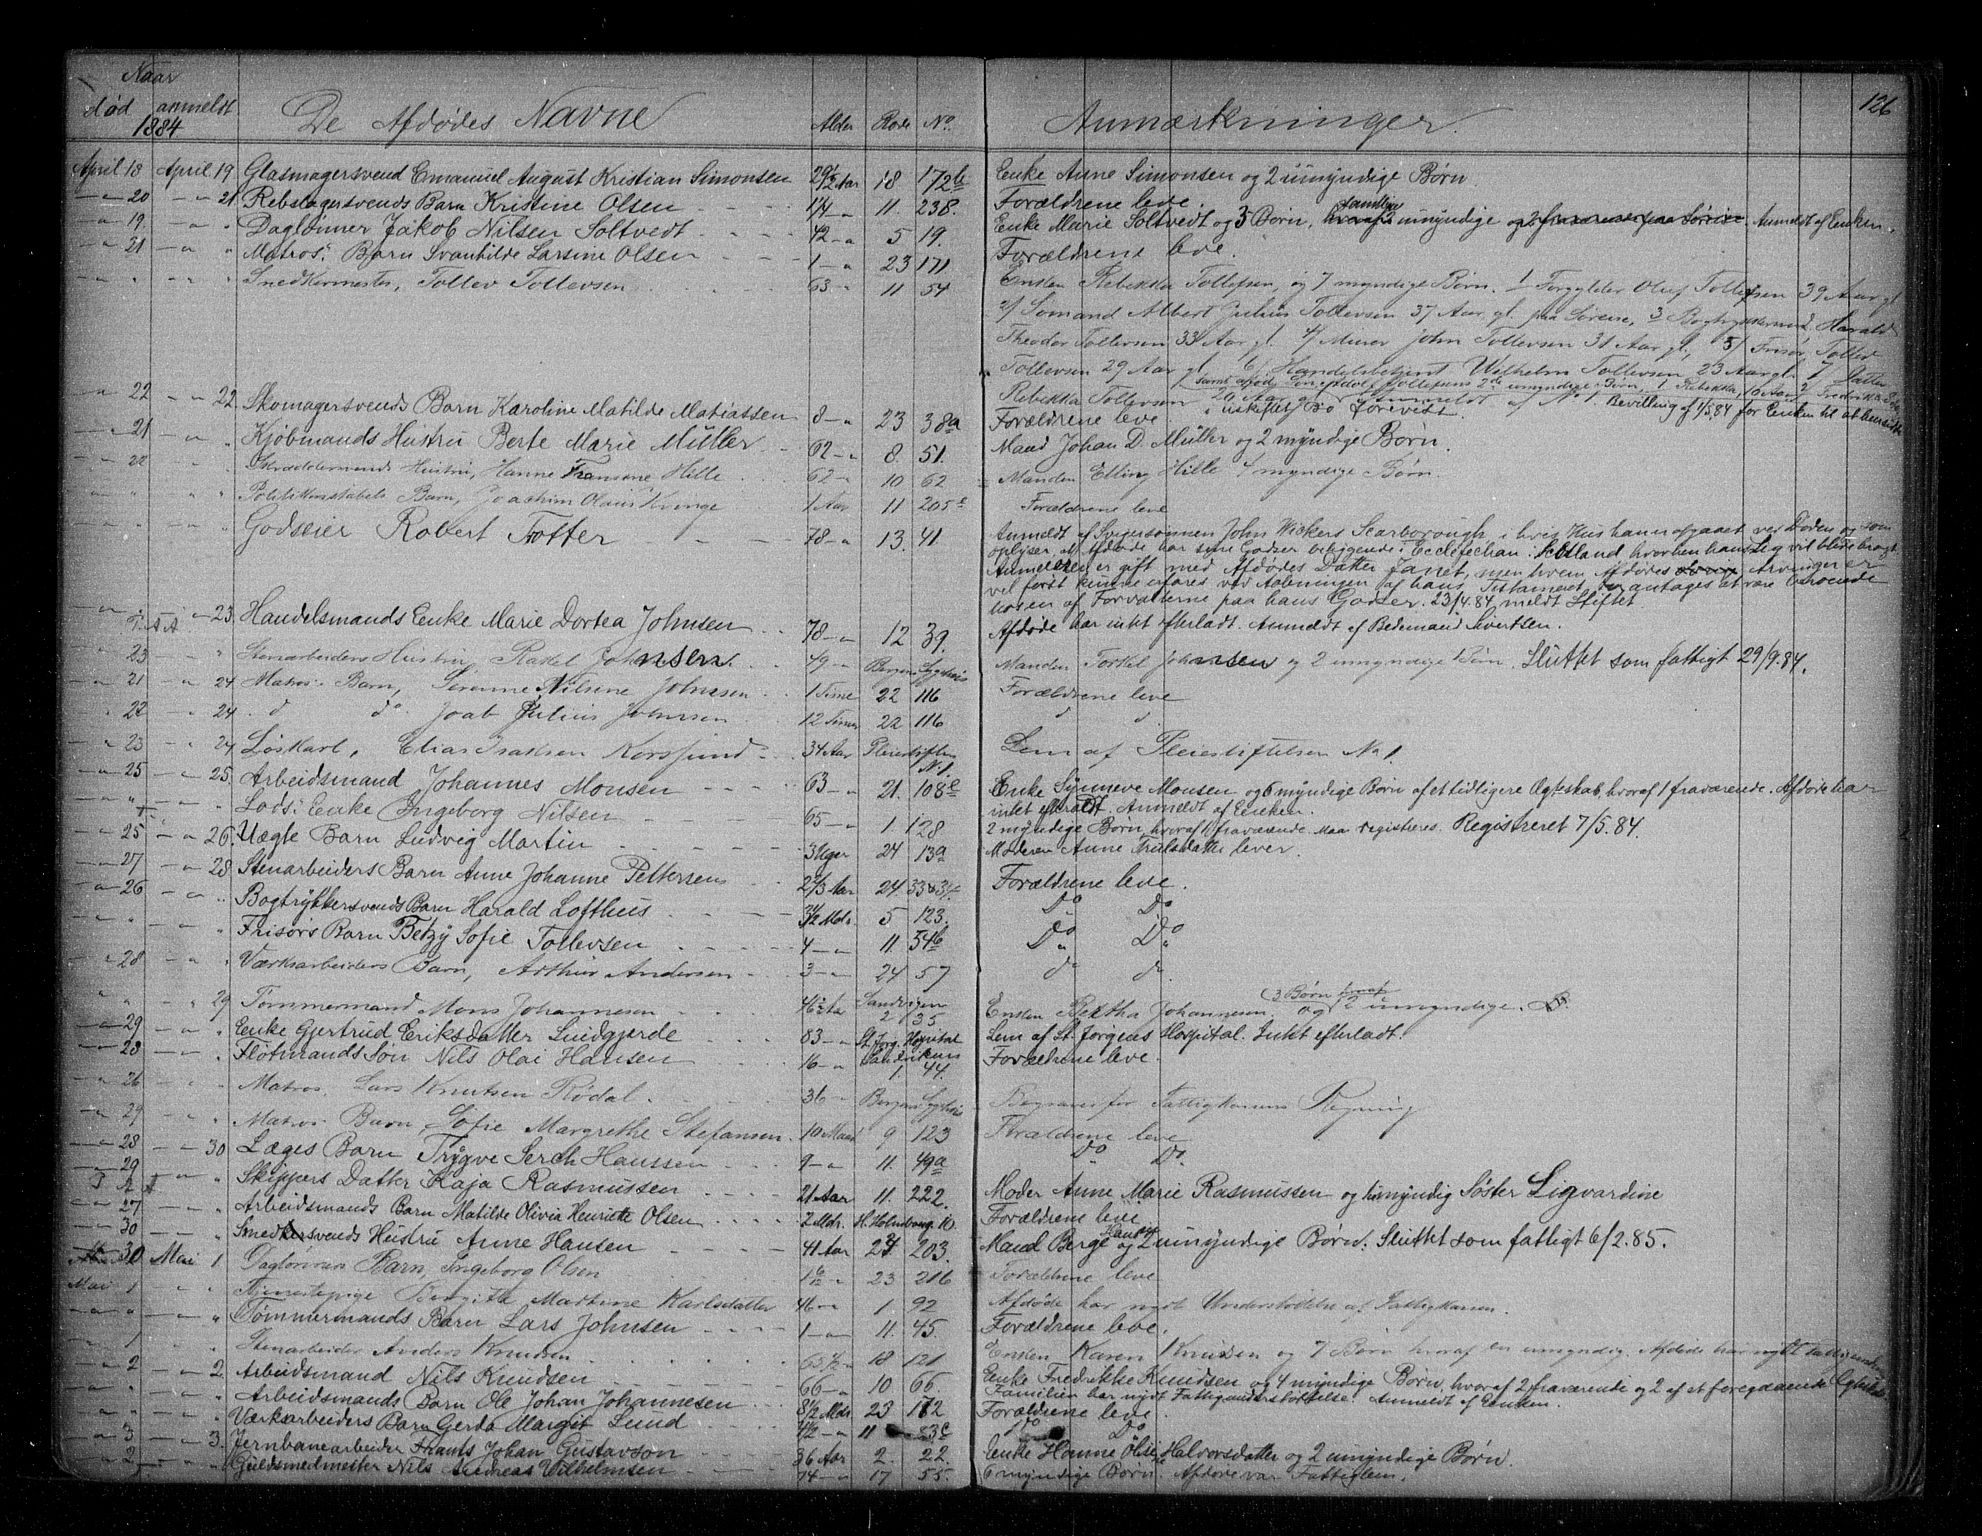 Naar
død anmeldt De Afdødes Navne Alder Rode No. Anmærkninger. 126
1884
April 18 April 19 Glasmagersvend Emanuel August Kristian Simonsen 29 1/2 Aar 18 172b Enke Anne Simonsen og 2 umyndige Børn
-"- 20 -"- 21 Rebslagersvends Barn Kristine Olsen 1 1/4 -"- 11. 238. Forældrene leve.
-"- 19. -"- " Daglønner Jakob Nilsen Soltvedt 42 -"- 5 19. Enke Marie Soltvedt og 3 Børn, hvoraf 2 samtlige umyndige og 2 fraværende paa Søreise. Anmeldt af Enken.
-"- 21 -"- " Matros: Barn Svanhilde Larsine Olsen 1 -"- 23 171 Forældrene leve.
-"- " -"- " Snedkermester, Tollev Tollevsen 63 -"- 11 54 Enken Rebekka Tollefsen, og 7 myndige Børn. 1/ Forgylder Oluf Tollefsen 39 Aar gl
2/ Sømand Albert Julius Tollevsen 37 Aar gl. paa Søreise, 3 Bogtrykkersvend Harald
Theodor Tollevsen 33 Aar gl. 4/ Murer John Tollevsen 31 Aar gl, 5/ Frisør, Tollev
Tollevsen 29 Aar gl 6/ Handelsbetjent Wilhelm Tollevsen 23 Aar gl. 7 Datter
Rebekka Tollevsen 20 Aar gl anmeldt af No 1. Bevilling af 1/5.84 for Enken til at hensidde
-"- 22 -"- 22. Skomagersvends Barn Karoline Matilde Matiassen 8 -"- 23 38a Forældrene leve i uskiftet Bo forevist.
-"- 21 -"- " Kjøbmands Hustru Berte Marie Müller 62 -"- 8. 51. Mand Johan D. Müller og 2 myndige Børn.
-"- 22 -"- " Skræddersvends Hustru, Hanne Fransine Hille 62 -"- 10 62 Manden Elling Hille 4 myndige Børn.
-"- " -"- " Politikonstabels Barn, Joachim Olaus Kvinge 1 Aar 11 205c Forældrene leve
-"- " -"- " Godseier Robert Trotter 78 -"- 13. 41 Anmeldt af Svigersønnen John Vickers Scarborough, i hvis Hus han er afgaaet ved Døden og som
oplyser at Afdøde har sine Godser beliggende i Ecclefechan i Skotland hvorhen hans Lig vil blive bragt.
Anmelderen er gift med Afdødes Datter Janet, men hvem Afdødes Arvinger er
vil først kunne erfares ved Aabningen af hans Testament, der antages at være beroende
hos en af Forvalterne paa hans Godser. 23/4.84 meldt Stiftet
-"- " -"- 23. Handelsmands Enke Marie Dortea Johnsen 78 -"- 12 39. Afdøde har intet efterladt. Anmeldt af Bedemand Evertsen.
-"- 23 -"- " Stenarbeiders Hustru, Rakel Johnsen. 49 -"- Bergens Sygehus Manden Torkel Johnsen og 2 umyndige Børn. Sluttet som fattigt 29/9.84.
-"- 21 -"- 24 Matros: Barn, Serine Nilsine Johnsen 1 Time 22 116 Forældrene leve
-"- 22 -"- 24 d do Joab Julius Johnsen 12 Timer 22 116 d d.
-"- 23 -"- 24 Løskarl, Elias Isaksen Korsfund 34 Aar Pleiestiftelsen No 1. Lem af Pleiestiftelsen No 1.
-"- 25 -"- 25. Arbeidsmand Johannes Monsen 63 -"- 21. 108c Enke Synneve Monsen og 6 myndige Børn af et tidligere Ægteskab hvoraf 1 fraværende. Afdøde har
intet efterladt. Anmeldt af Enken.
-"- " -"- " Lods: Enke Ingeborg Nilsen 65 -"- 1. 128. 2 myndige Børn hvoraf 1 fraværende. Maa registreres. Registreret 7/5.84.
-"- 25 -"- 26. Uægte Barn Ludvig Martin 3 Uger 24 139 Moderen Anne Trulsdatter lever.
-"- 27 -"- 28 Stenarbeiders Barn Anne Johanne Pettersen 2 1/3 Aar 24 Forældrene leve.
-"- 26 -"- " Bogtrykkersvends Barn Harald Lofthus 3 1/2 Mdr. 5 123. Do Do
-"- " -"- " Frisørs Barn Betzy Sofie Tollevsen 4 -"- 11. 54b Do Do
-"- 28 -"- " Værksarbeiders Barn, Arthur Andersen 3 -"- 24 57 do do
-"- " -"- 29 Tømmermand Mons Johannesen 46 1/2 Aar Sandvigen 2 35 Enken Bertha Johannesen, og 3 Børn hvoraf 2 umyndige.
-"- 29 -"- " Enke Gjertrud Eriksdatter Lindgjerde 83 -"- St. Jørg. Hospital Lem af St. Jørgens Hospital. Intet efterladt.
-"- 28 -"- " Fløtmands Søn Nils Olai Hansen 16 -"- Sandviken 1. 44. Forældrene leve.
-"- 26 -"- " Matros. Lars Knutsen Rødal. 36 -"- Bergens Sygehus Begraves for Fattigkassens Regning
-"- 29 -"- " Matros: Barn, Sofie Margrethe Stefansen 10 Maan 9 123 Forældrene leve
-"- 28 -"- 30 Læges Barn Trygve Serch Hanssen 9 -"- 11. 49a " Do Do.
-"- 29 -"- " Skippers Datter Kaja Rasmussen 21 Aar 11. 222. Moder Anne Marie Rasmussen og 1 umyndig Søster Sigvardine
-"- 27 -"- " Arbeidsmands Barn Matilde Olivia Henriette Olsen 2 Mdr. Forældrene leve
-"- 30 -"- " Smedsvends Hustru Anne Hansen 41 Aar 24 203. Mand Berge Hansen og 2 umyndige Børn. Sluttet som fattigt 6/2.85.
30 Mai 1 Dagløners Barn, Ingeborg Olsen 1 6/12 -"- 23 216 Forældrene leve
Mai 1 -"- " Tjenestepige Bergith Martine Karlsdatter 46 -"- 1. 92 Afdøde har nydt Understøttelse af Fattigkassen.
-"- " -"- " Tømmermands Barn Lars Johnsen 1 -"- 11. 45. Forældrene leve.
-"- 1 -"- " Stenarbeider Anders Knudsen 65 1/2 -"- 18 121 Enken Karen Knudsen og 7 Børn hvoraf en umyndig. Afdøde har nydt
-"- 2 -"- 2. Arbeidsmand Nils Knudsen 66 -"- 10 66. Enke Fredrikke Knudsen og 4 myndige Børn, hvoraf 2 fraværende og 2 af et foregaaende Ægteskab
Familien har nydt Fattigunderstøttelse. Anmeldt af Enken.
-"- " -"- " Arbeidsmands Barn Ole Johan Johannesen 8 1/2 Mdr. 23 182 Forældrene leve.
-"- " -"- " Værksarbeiders Barn Gerda Margit Lund 4 1/2 -"- 11 23c Do Do
-"- 3. -"- 3. Jernbanearbeider Frants Johan Gustavson 36 Aar 2. 22. Enke Hanne Olsine Halvorsdatter og 2 umyndige Børn.
-"- 2 -"- " Guldsmedmester Nils Andreas Vilhelmsen 74 -"- 17 55. 6 myndige Børn. Afdøde var Fattiglem.